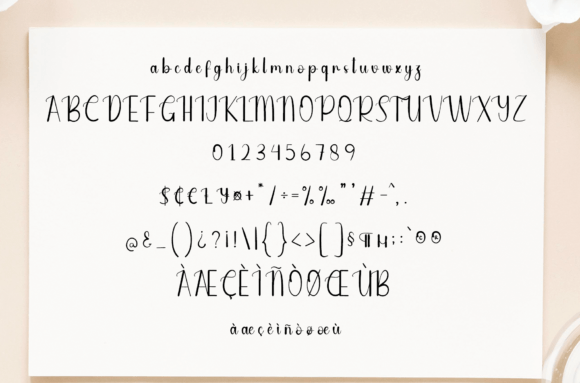 abcdefghijklmnopqrstuvwxyz
ABCDEFGHIJKLMNOPQRSTUVWXYZ
0123456789
$¢€£¥¤+*/÷=%‰"'#-^,.
@&_()¿?¡!\|{}<>[]§¶µ;:`©®
ÀÆÇÈÌÑÒØŒÙB
àæçèìñòøœù